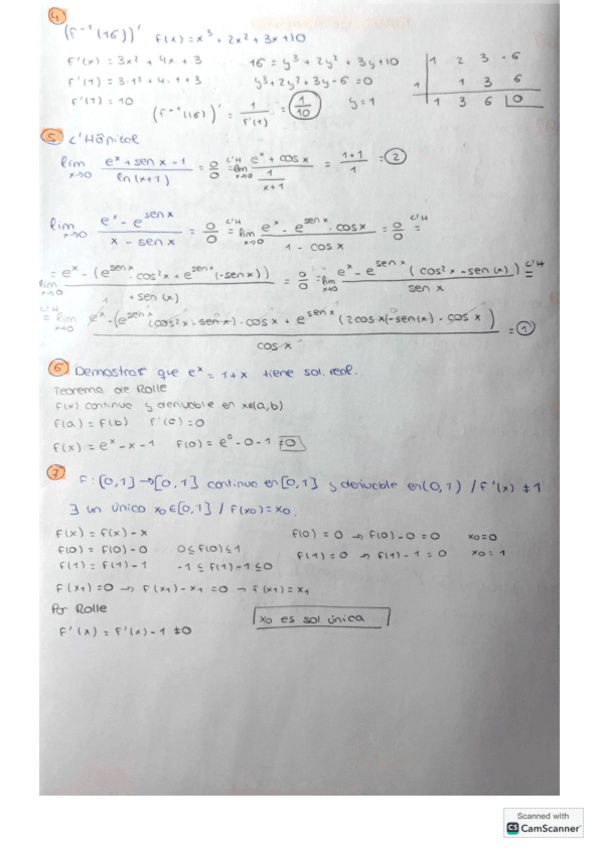 4)
(f⁻¹(16))' f(x)=x³+2x²+3x+10
f'(x) = 3x² + 4x + 3 16 = y³ + 2y² + 3y+10 1 2 3 -6
f'(1) = 3·1² + 4·1 + 3 y³+2y²+3y-6 = 0 1 1 3 6
f'(1) = 10 (f⁻¹(16))' = 1/f'(1) = 1/10 y=1 1 3 6 0
5) L'Hôpital
lim x→0 (e^x + sen x - 1)/(ln(x+1)) = 0/0 =L'H lim x→0 (e^x + cos x)/(1/(x+1)) = (1+1)/1 = 2
lim x→0 (e^x - e^(sen x))/(x - sen x) = 0/0 =L'H lim x→0 (e^x - e^(sen x)·cos x)/(1 - cos x) = 0/0 L'H =
= lim x→0 (e^x - (e^(sen x)·cos²x + e^(sen x)(-sen x)))/(+ sen(x)) = 0/0 = lim x→0 (e^x - e^(sen x)(cos²x - sen(x)))/(sen x) L'H =
L'H = lim x→0 (e^x - (e^(sen x)(cos²x - sen x)·cos x + e^(sen x)(2cos x(-sen(x)·cos x)))/(cos x) = 1
6) Demostrar que e^x = 1+x tiene sol. real.
Teorema de Rolle
f(x) continuo y derivable en x∈(a,b)
f(a) = f(b) f'(c) = 0
f(x) = e^x - x - 1 f(0) = e⁰ - 0 - 1 = 0
7) f: [0,1] → [0,1] continuo en [0,1] y derivable en (0,1) / f'(x) ≠ 1
∃ un único x₀∈[0,1] / f(x₀)=x₀.
F(x) = f(x) - x f(0) = 0 → f(0) - 0 = 0 x₀=0
F(0) = f(0) - 0 0 ≤ f(0) ≤ 1 F(1) = 0 → f(1) - 1 = 0 x₀ = 1
F(1) = f(1) - 1 -1 ≤ f(1) - 1 ≤ 0
F(x₁)=0 → f(x₁) - x₁ = 0 → f(x₁) = x₁
Por Rolle x₀ es sol. única
F'(x) = f'(x) - 1 ≠ 0
Scanned with
CS CamScanner